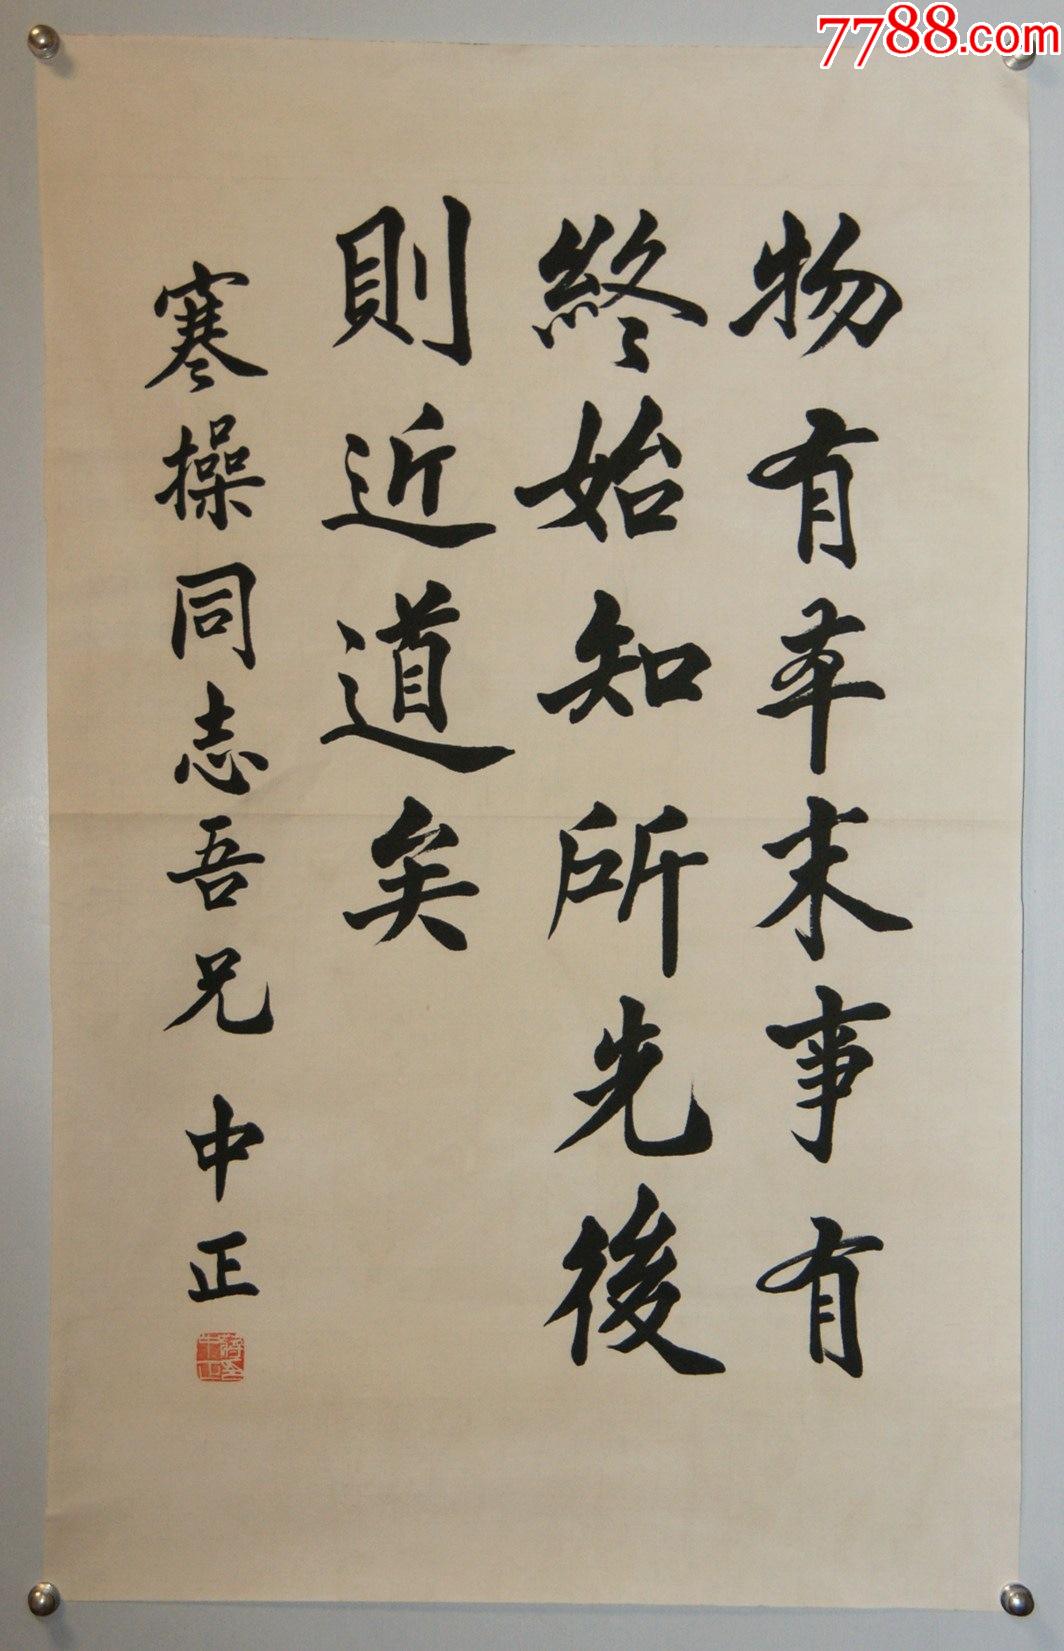 物有本末事有
終始知所先後
則近道矣
寒操同志吾兄 中正
蔣中正印
7788.com